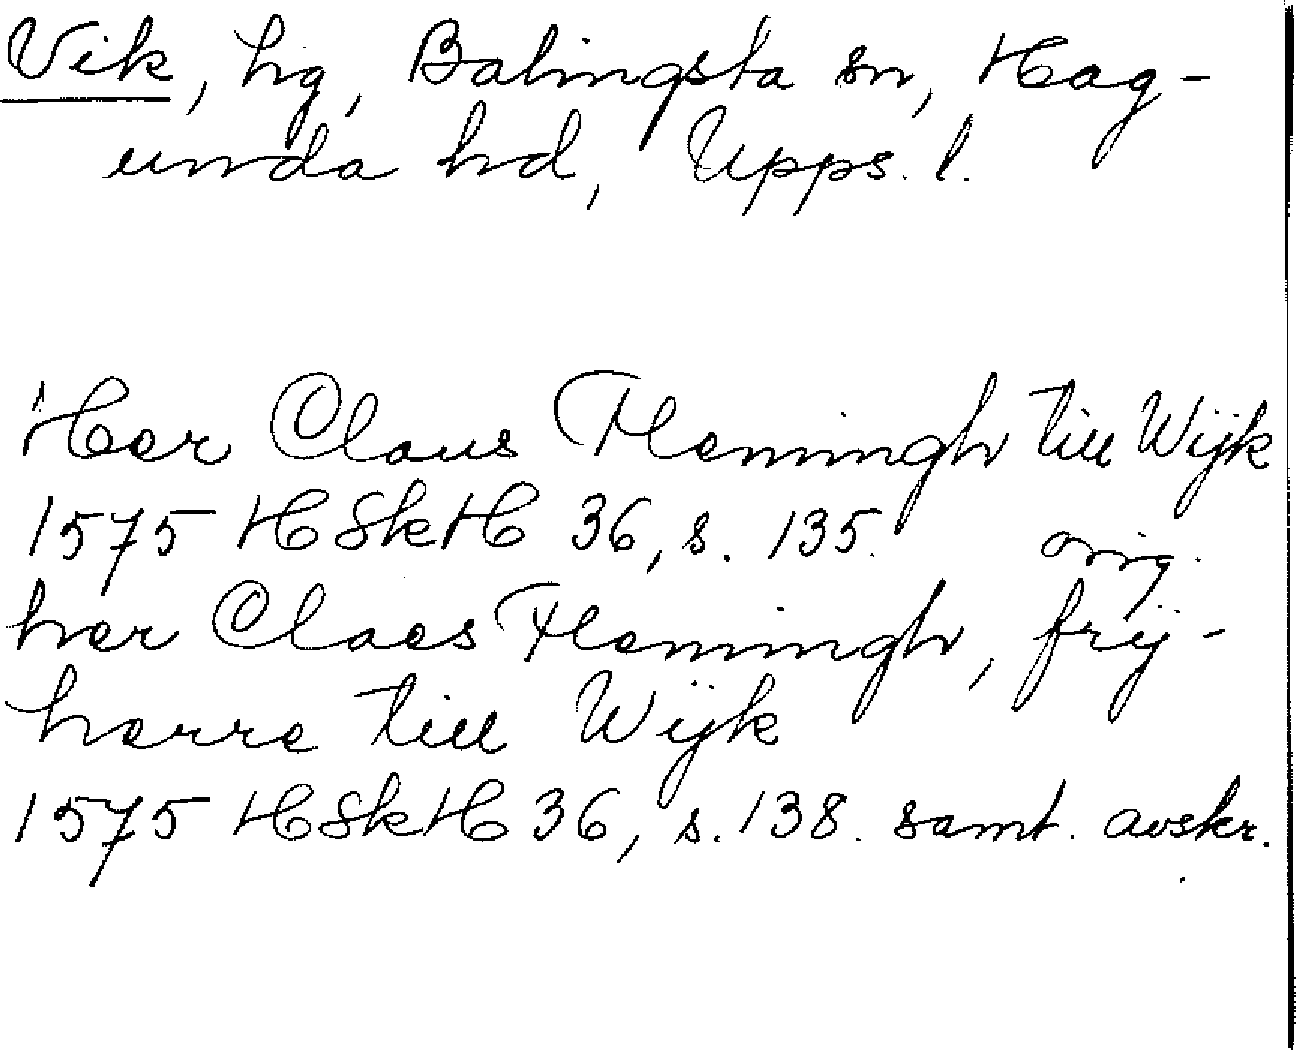 Vik, hg, Balingsta sn, Hag-
unda hd, Upps. l.
Her Claus Flemingh till Wijk
1575 HSkH 36, s. 135. orig.
her Claes Flemingh, frij-
herre till Wijk
1575 HSkH 36, s. 138. samt. avskr.